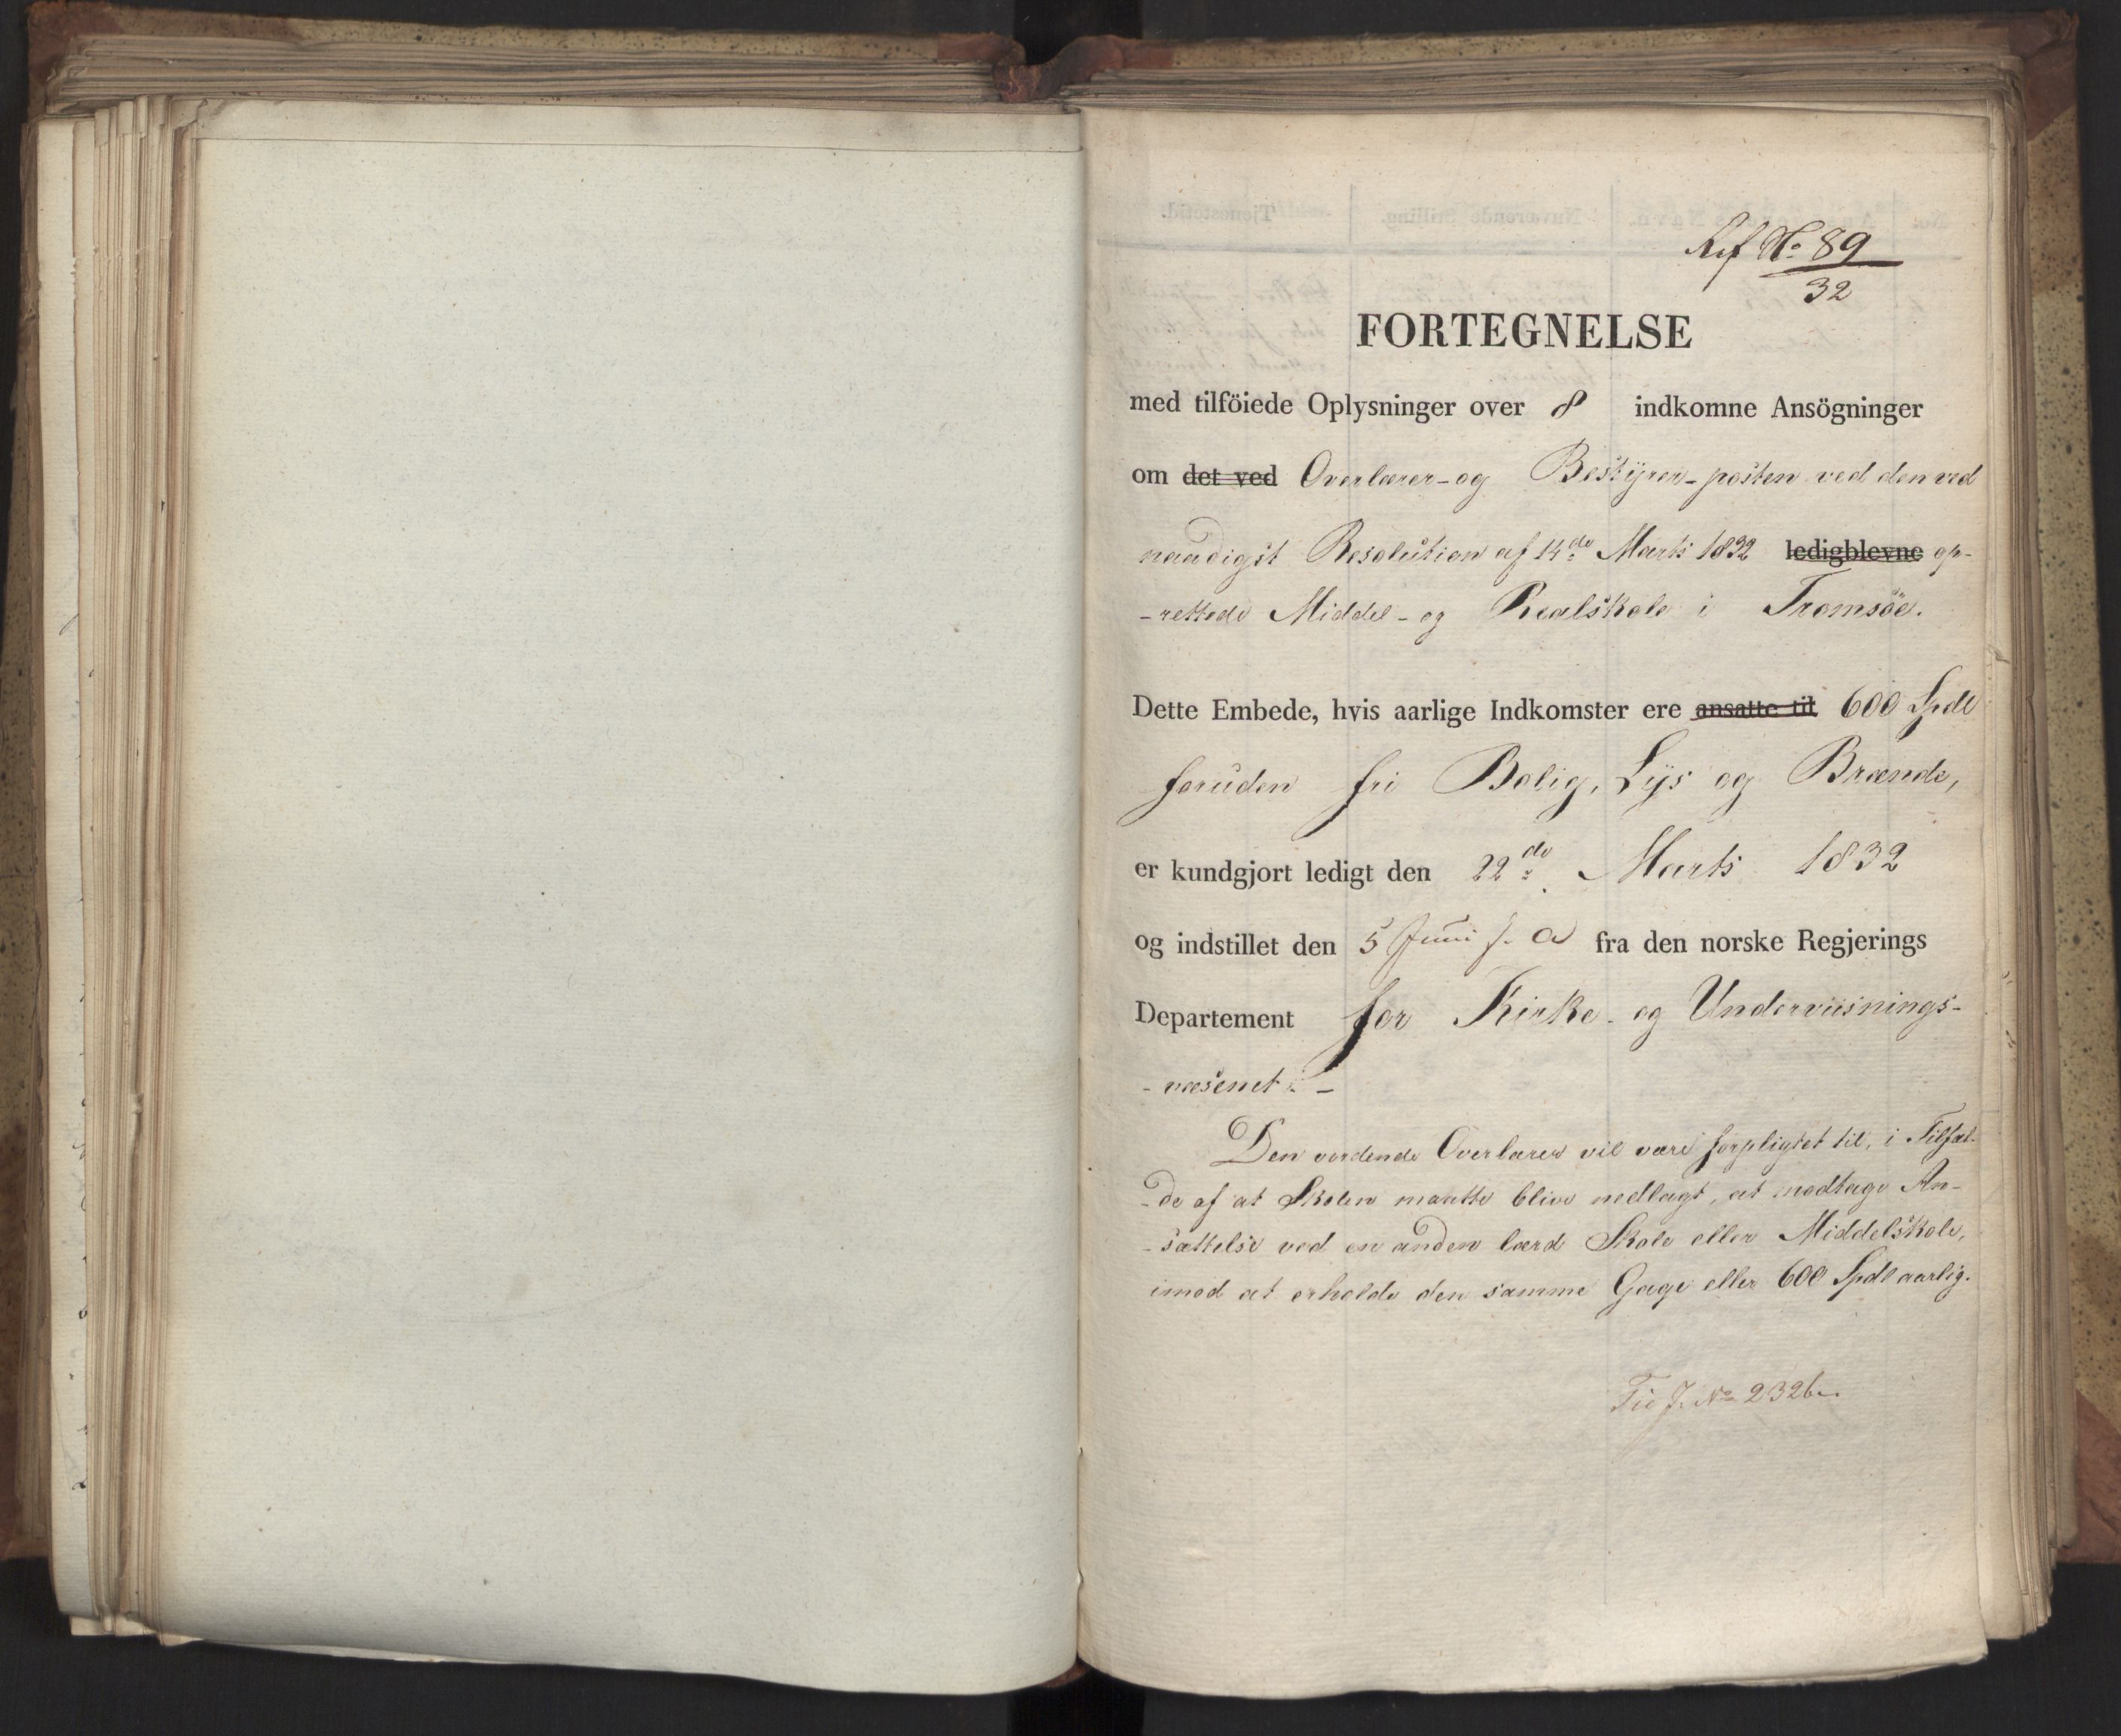 Ref No 89
32
FORTEGNELSE
med tilföiede Oplysninger over 8 indkomne Ansögninger
om det ved Overlærer- og Bestyrer-posten ved den ved
naadigst Resolution af 14de Marts 1832 ledigblevne op-
-rettede Middel- og Realskole i Tromsöe.
Dette Embede, hvis aarlige Indkomster ere ansatte til 600 Spdl
foruden fri Bolig, Lys og Brænde,
er kundgjort ledigt den 22de Marts 1832
og indstillet den 5 Juni s. A fra den norske Regjerings
Departement for Kirke- og Underviisnings-
-væsenet. -
Den vordende Overlærer vil være forpligtet til, i Tilfæl-
-de af at Skolen maatte blive nedlagt, at modtage An-
-sættelse ved en anden lærd Skole eller Middelskole,
imod at erholde den samme Gage eller 600 Spdl aarlig.
J. No 232b